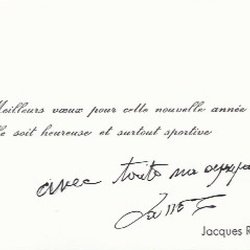 Meilleurs vœux pour cette nouvelle année
soit heureuse et surtout sportive
avec toute ma
Jacques R